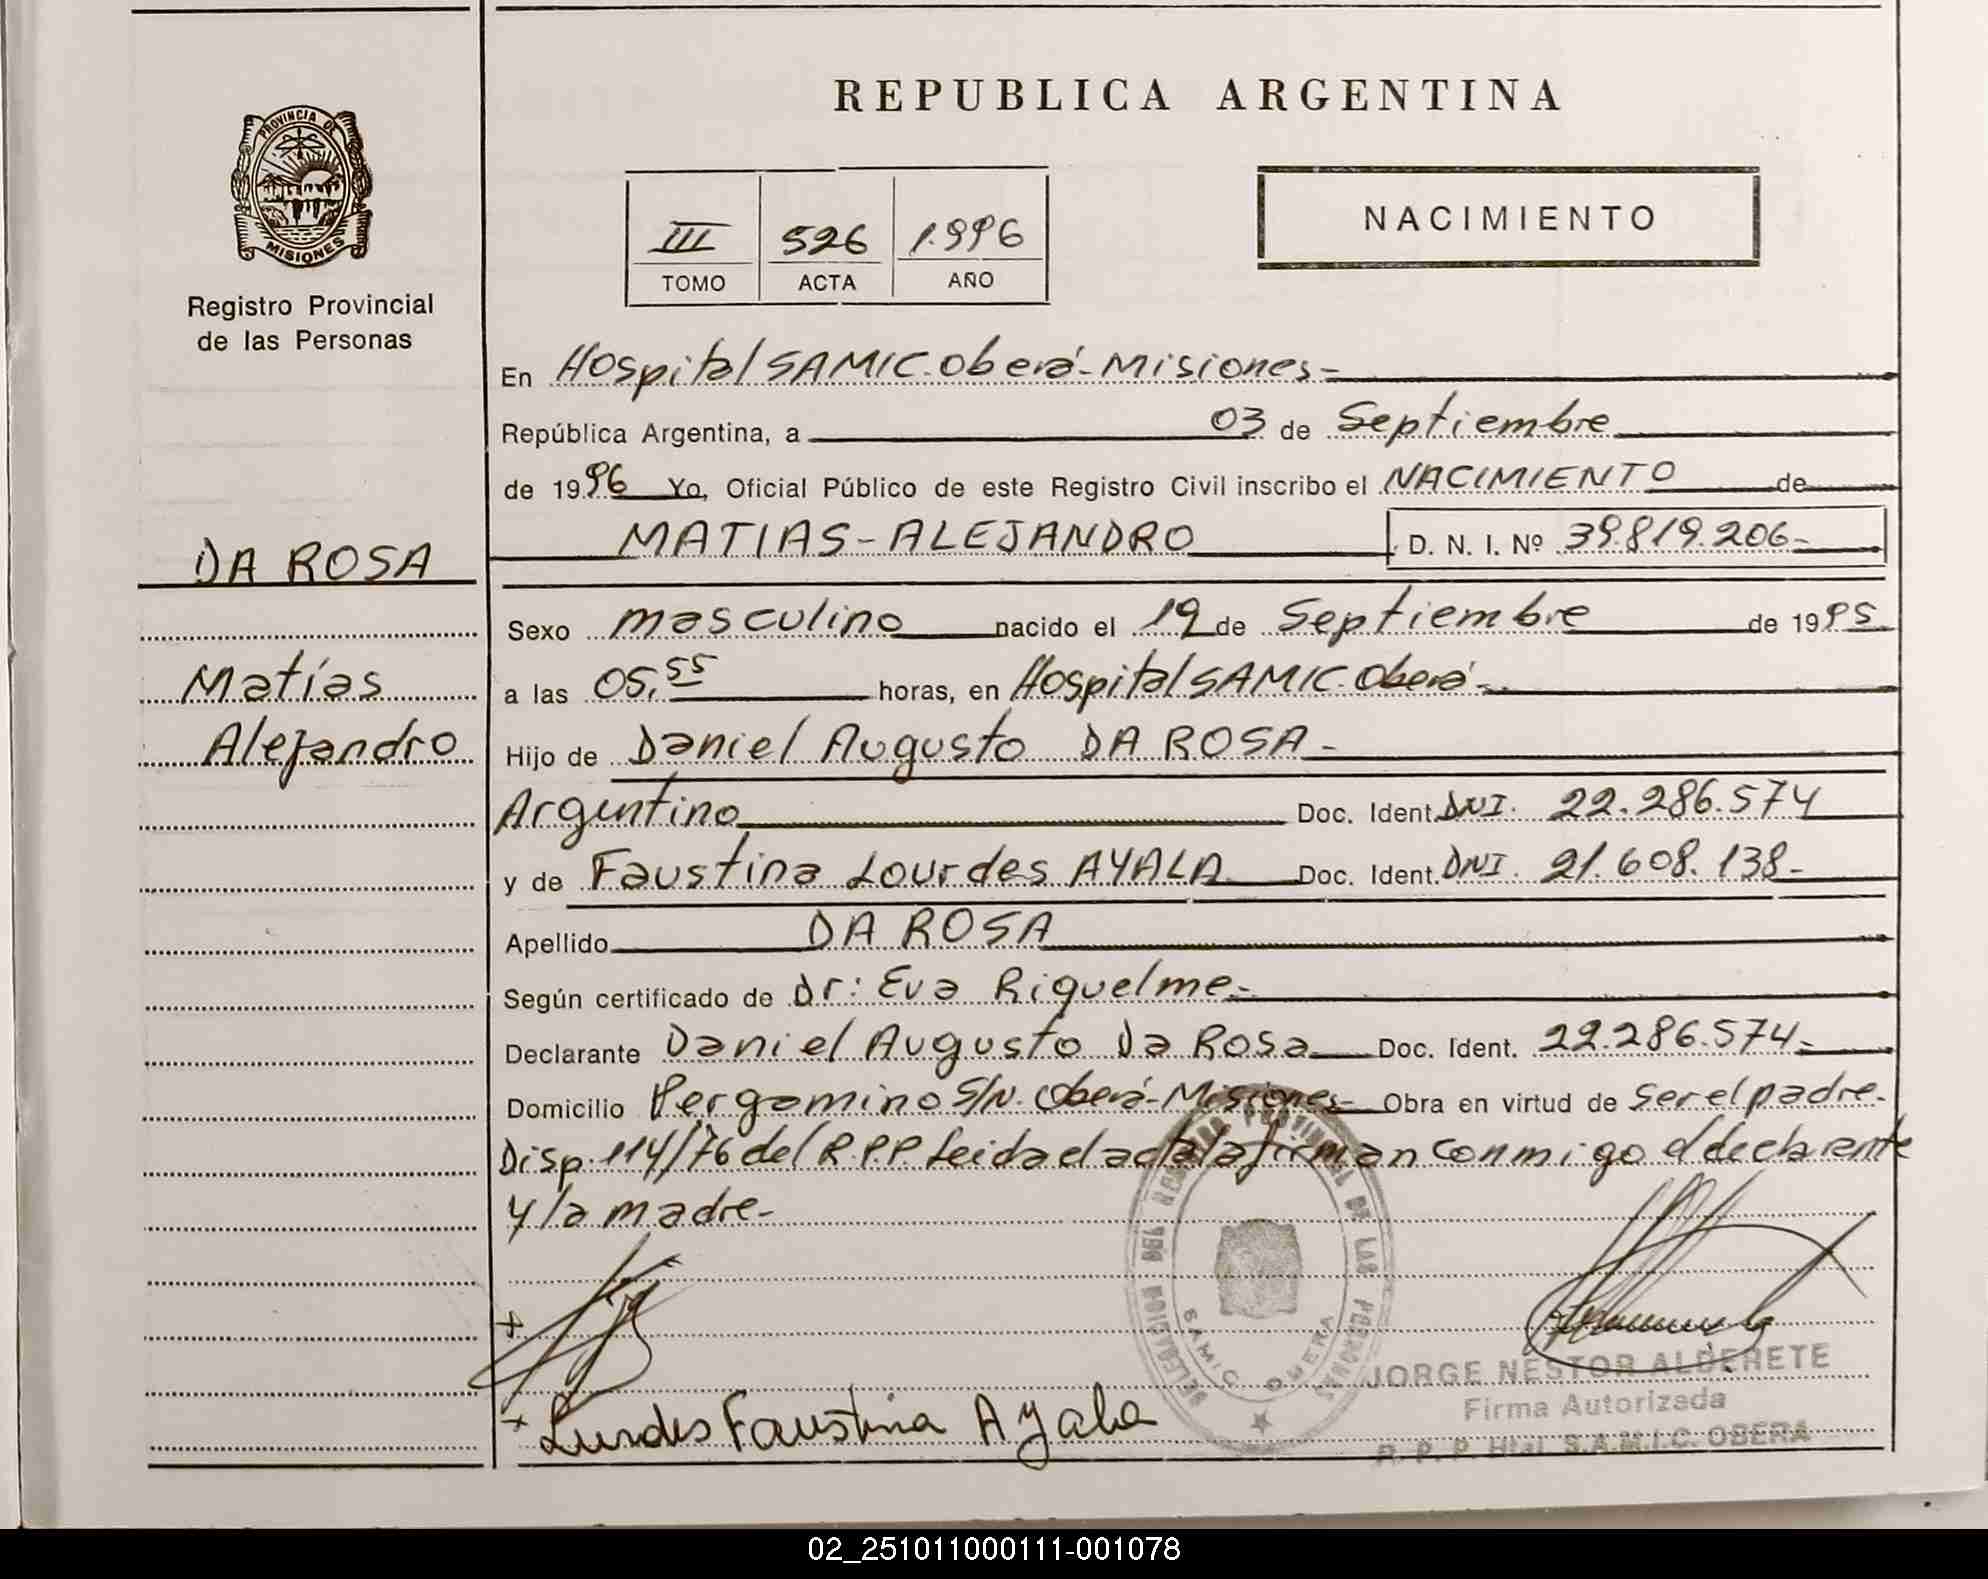 REPUBLICA ARGENTINA
PROVINCIA DE
MISIONES
Registro Provincial
de las Personas
III 526 1.996
TOMO ACTA AÑO
NACIMIENTO
En Hospital SAMIC. Oberá - Misiones -
República Argentina, a 03 de Septiembre
de 1996 Yo, Oficial Público de este Registro Civil inscribo el NACIMIENTO de
DA ROSA
MATIAS - ALEJANDRO D. N. I. Nº 39.819.206 -
Sexo masculino nacido el 19 de Septiembre de 1995
Matías
a las 05,55 horas, en Hospital SAMIC. Oberá -
Alejandro
Hijo de Daniel Augusto DA ROSA -
Argentino Doc. Ident. DNI. 22.286.574
y de Faustina Lourdes AYALA Doc. Ident. DNI. 21.608.138 -
Apellido DA ROSA
Según certificado de Dr: Eva Riquelme -
Declarante Daniel Augusto Da Rosa Doc. Ident. 22.286.574 -
Domicilio Pergamino S/N. Oberá - Misiones - Obra en virtud de ser el padre -
Disp. 114/76 del R.P.P. Leida el acta la firman conmigo el declarante
y la madre -
DELEGACION DEL REGISTRO PROVINCIAL DE LAS PERSONAS
SAMIC OBERA
JORGE NESTOR ALDERETE
Firma Autorizada
R. P. P. Htal. S.A.M.I.C. OBERA
+
+ Lurdes Faustina Ayala
02_251011000111-001078